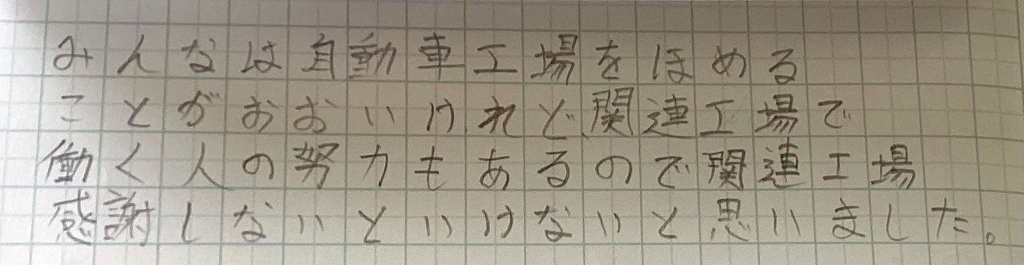 みんなは自動車工場をほめる
ことがおおいけれど関連工場で
働く人の努力もあるので関連工場
感謝しないといけないと思いました。